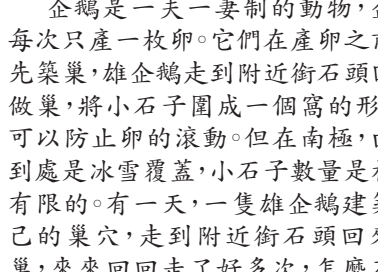 企鵝是一夫一妻制的動物,
每次只產一枚卵。它們在產卵之
先築巢,雄企鵝走到附近銜石頭
做巢,將小石子圍成一個窩的形
可以防止卵的滾動。但在南極,
到處是冰雪覆蓋,小石子數量是
有限的。有一天,一隻雄企鵝建
己的巢穴,走到附近銜石頭回
巢,來來回回走了好多次,怎麼